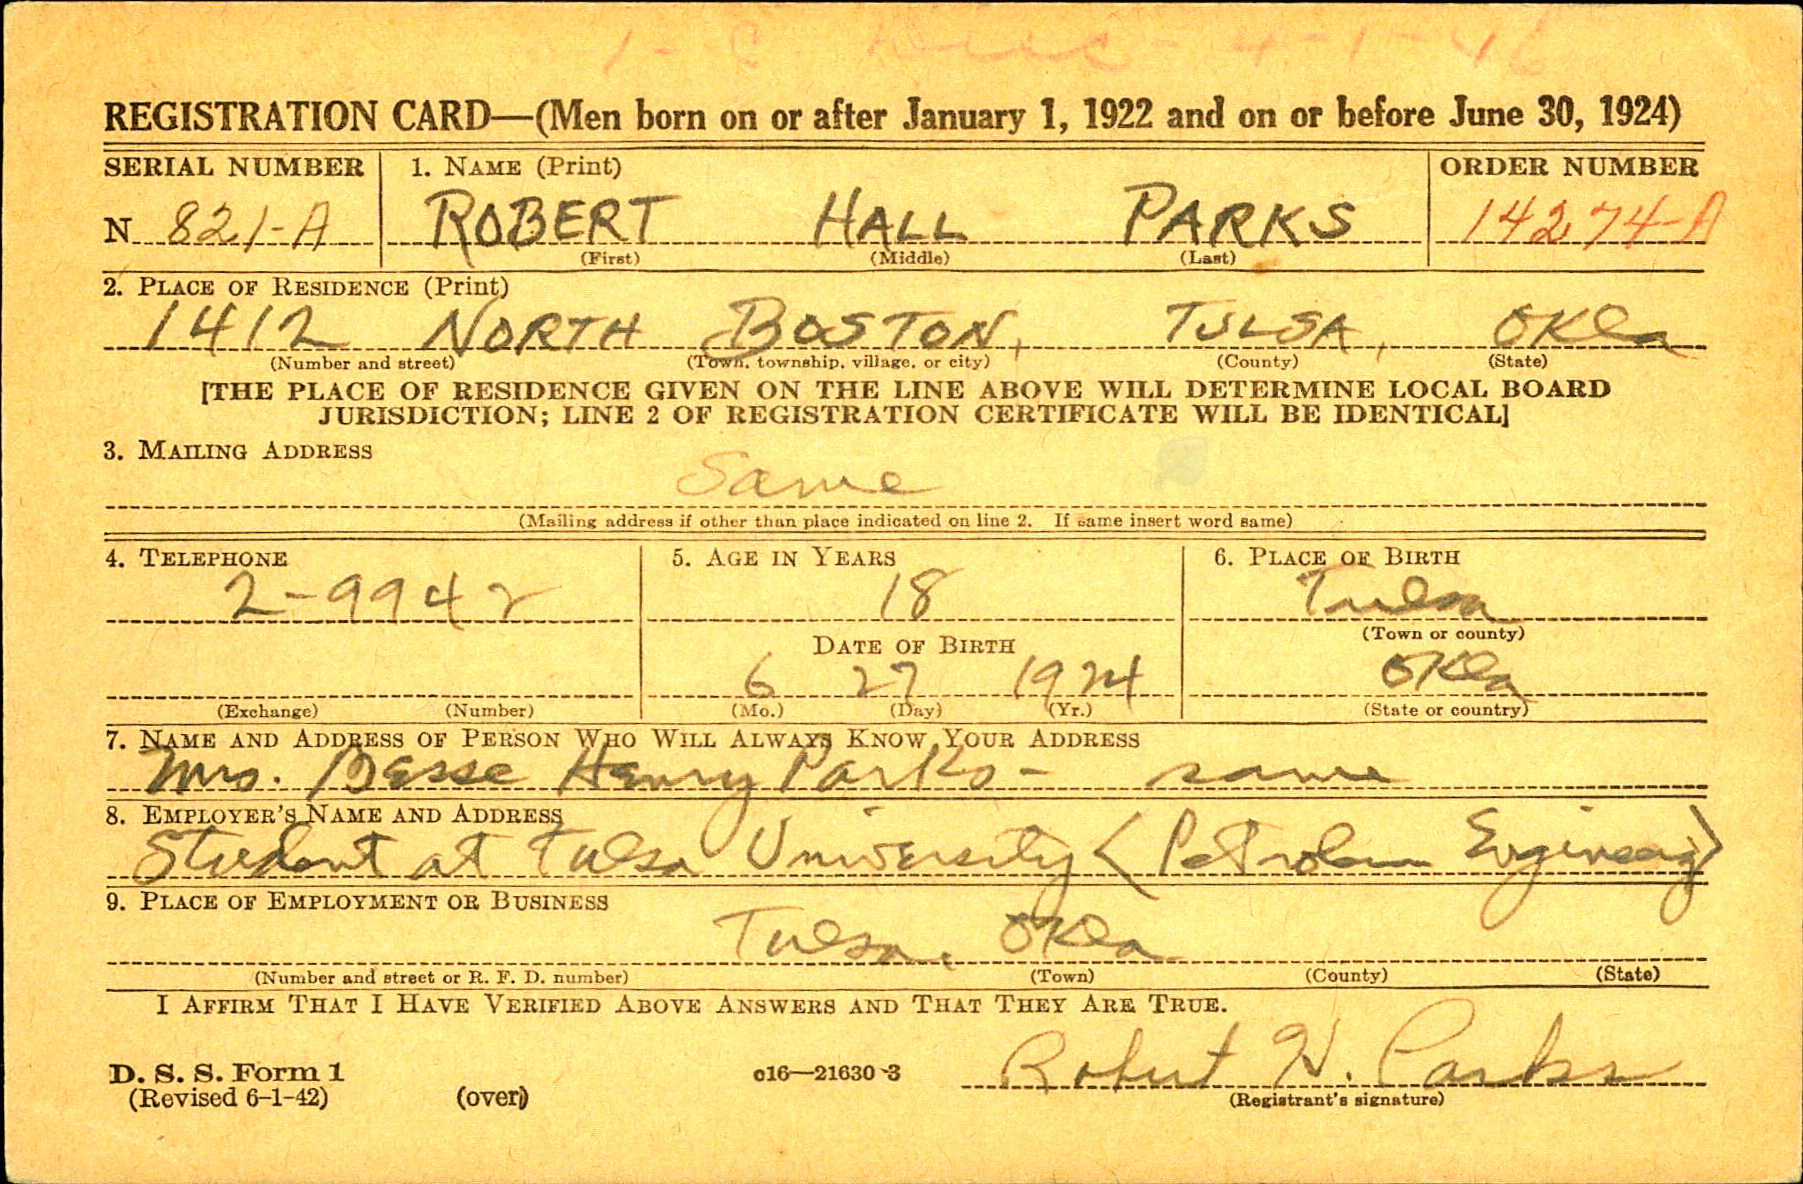 1-C Disc - 4-1-46
REGISTRATION CARD—(Men born on or after January 1, 1922 and on or before June 30, 1924)
SERIAL NUMBER 1. NAME (Print) ORDER NUMBER
N 821-A ROBERT HALL PARKS 14274-A
(First) (Middle) (Last)
2. PLACE OF RESIDENCE (Print)
1412 NORTH BOSTON, TULSA, OKla
(Number and street) (Town, township, village, or city) (County) (State)
[THE PLACE OF RESIDENCE GIVEN ON THE LINE ABOVE WILL DETERMINE LOCAL BOARD
JURISDICTION; LINE 2 OF REGISTRATION CERTIFICATE WILL BE IDENTICAL]
3. MAILING ADDRESS
Same
(Mailing address if other than place indicated on line 2. If same insert word same)
4. TELEPHONE 5. AGE IN YEARS 6. PLACE OF BIRTH
2-9942 18 Tulsa
(Town or county)
DATE OF BIRTH
6 27 1924 OKla
(Exchange) (Number) (Mo.) (Day) (Yr.) (State or country)
7. NAME AND ADDRESS OF PERSON WHO WILL ALWAYS KNOW YOUR ADDRESS
Mrs. Besse Henry Parks - same
8. EMPLOYER'S NAME AND ADDRESS
Student at Tulsa University (Petroleum Engineering)
9. PLACE OF EMPLOYMENT OR BUSINESS
Tulsa, OKla
(Number and street or R. F. D. number) (Town) (County) (State)
I AFFIRM THAT I HAVE VERIFIED ABOVE ANSWERS AND THAT THEY ARE TRUE.
D. S. S. Form 1 c16—21630-3 Robert H. Parks
(Revised 6-1-42) (over) (Registrant's signature)